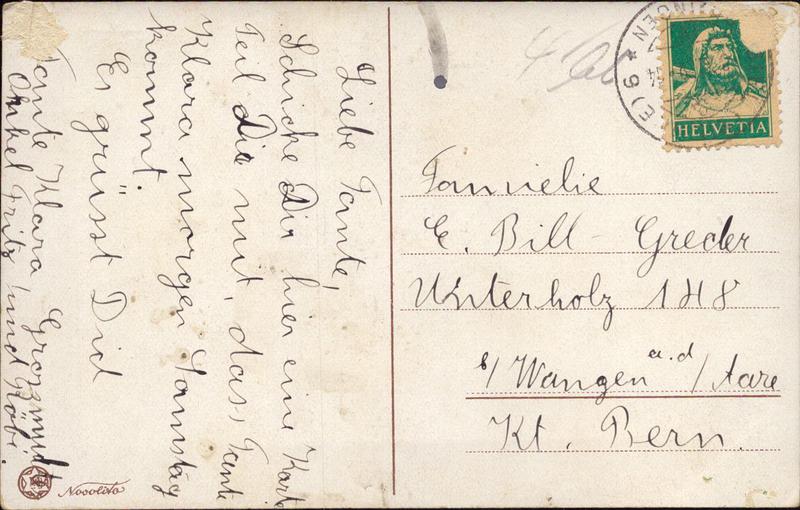 Liebe Tante,
Schicke Dir hier eine Karte
Teil Dir mit, dass Tante
Klara morgen Samstag
kommt.
Es grüsst Dich
Tante Klara, Grossmutt
Onkel Fritz und Röbi.
Novolito
HELVETIA
Familie
E. Bill - Greder
Unterholz 148
b/ Wangen a.d/Aare
Kt. Bern.